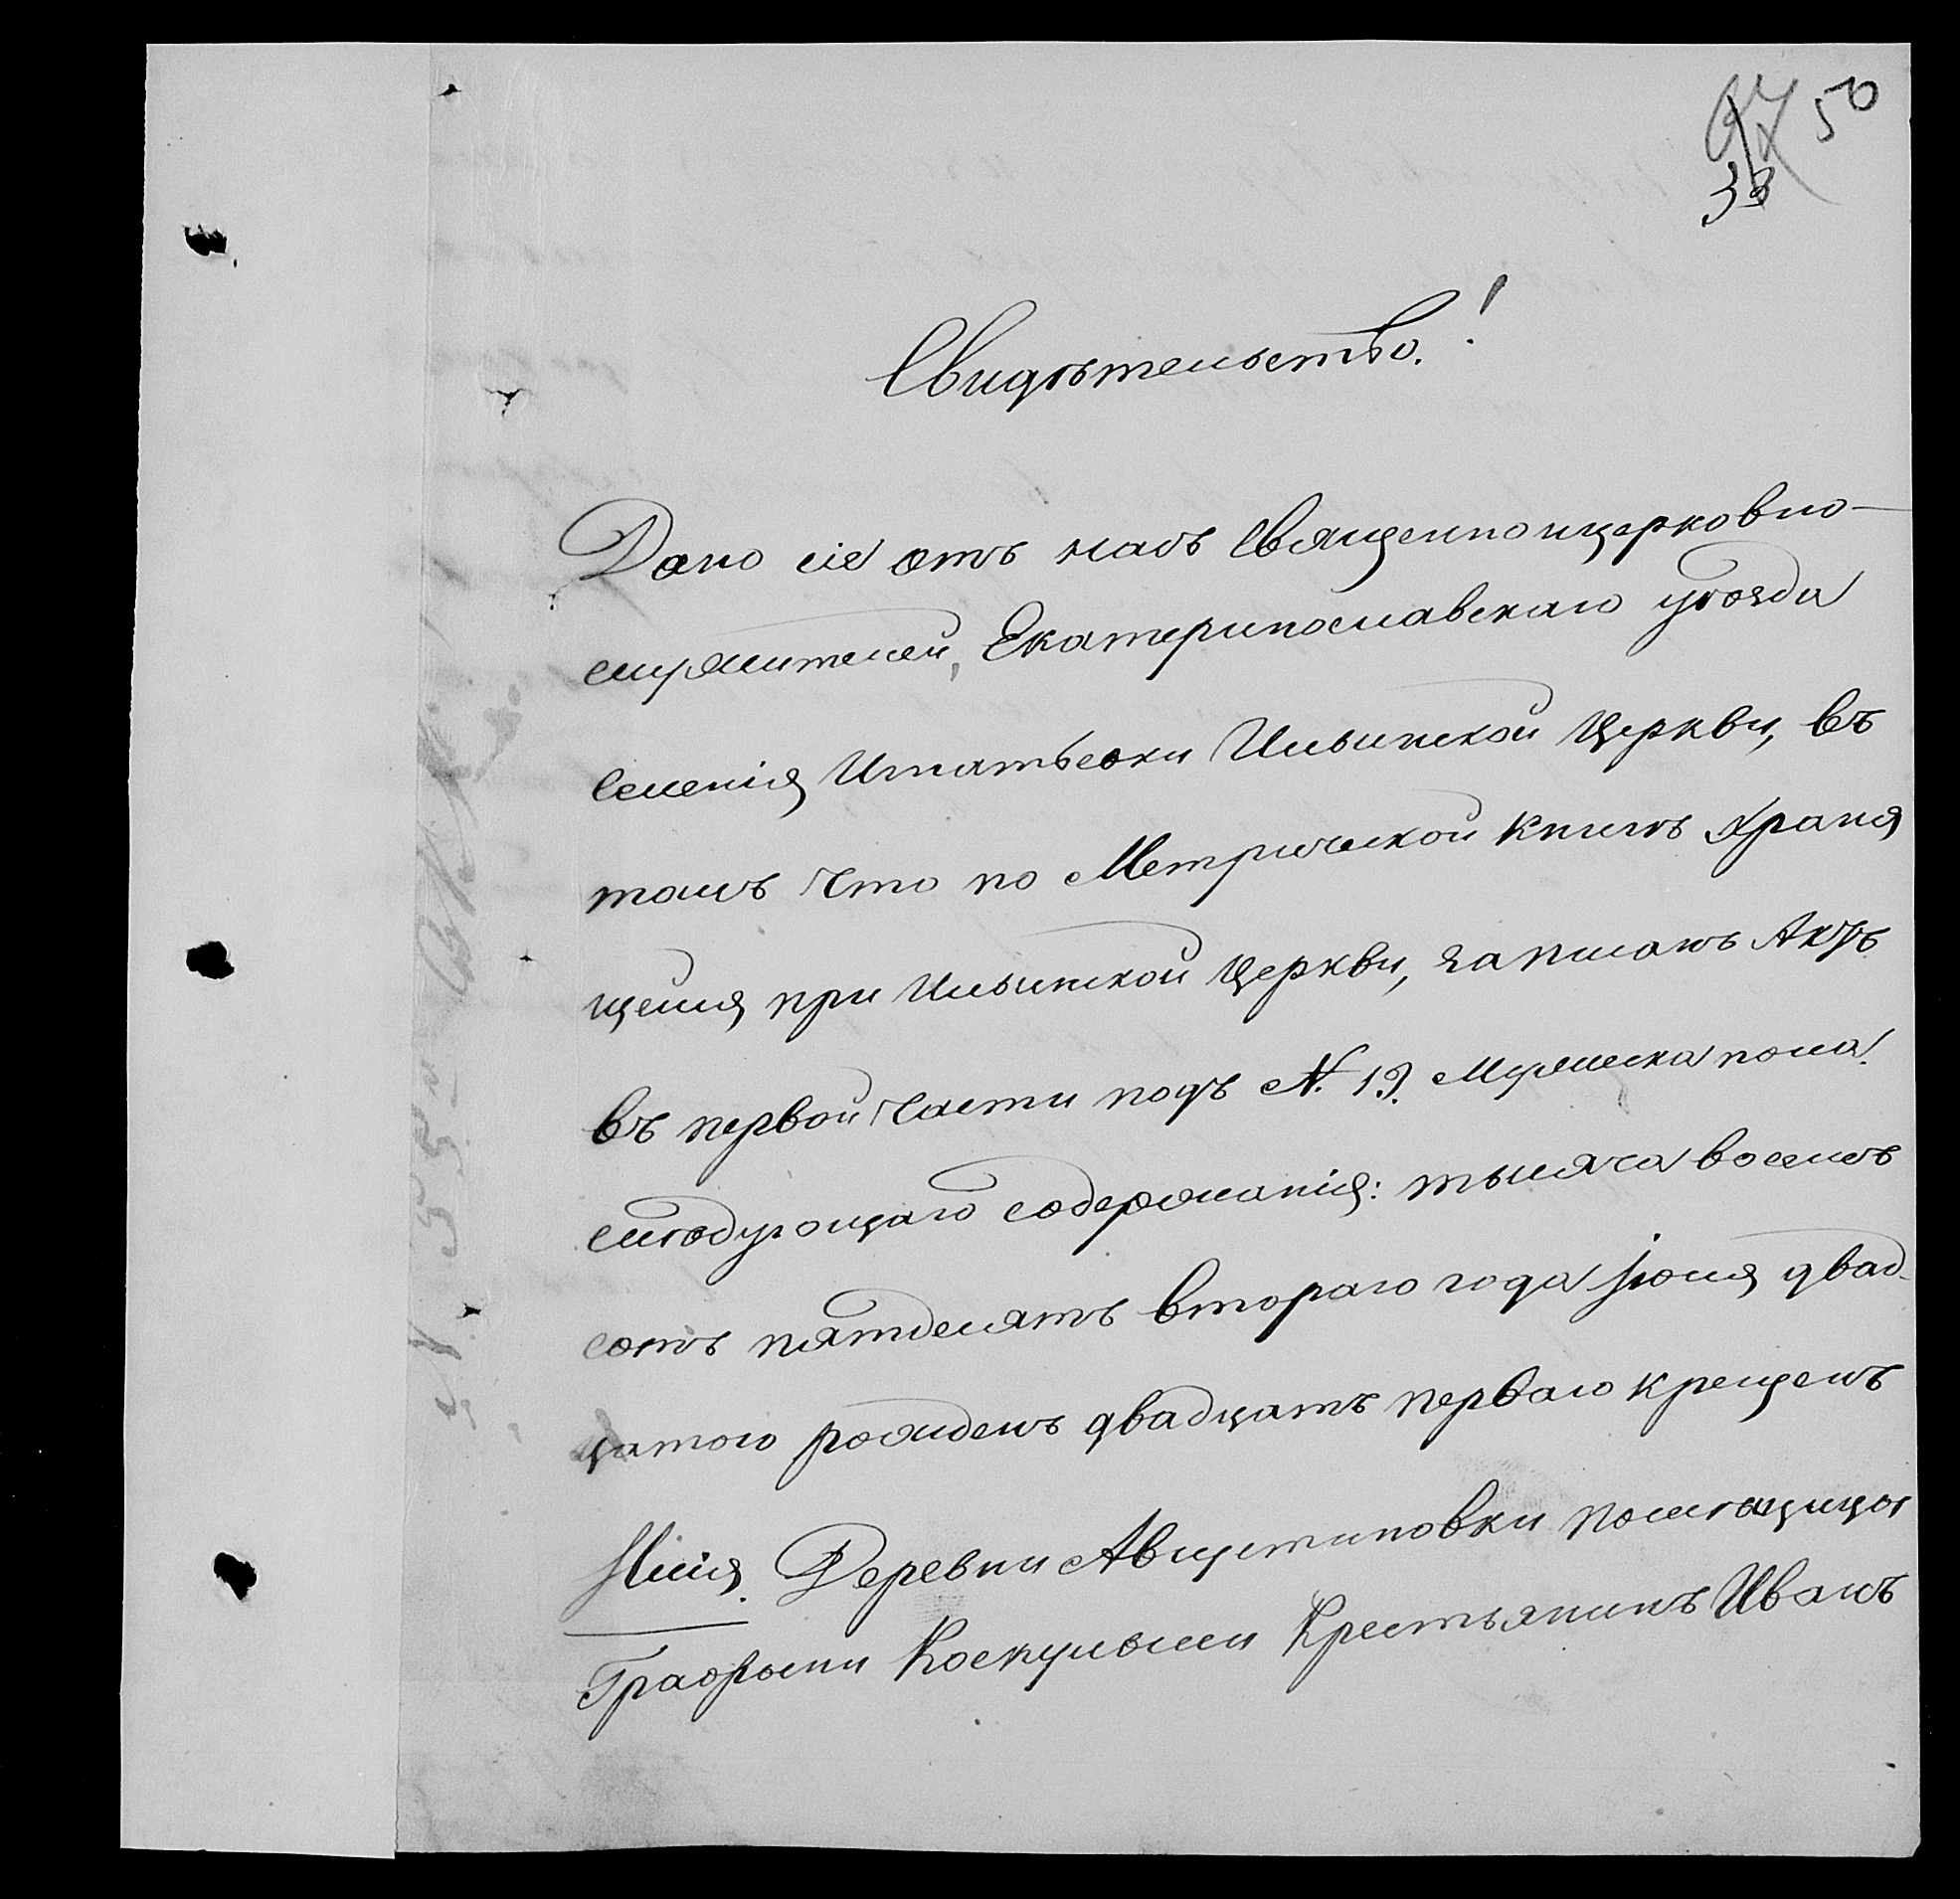 50
33
Свидѣтельство!
Дано сіе отъ насъ Священноицерковно-
служителей, Екатеринославскаго уѣзда
селенія Игнатьевки Ильинской Церкви, въ
томъ что по Метрической книгѣ Храня
щейся при Ильинской Церкви, записанъ Актъ
въ первой части подъ №. 19. Мужеска пола.
слѣдующаго содержанія: тысяча восемь
сотъ пятдесятъ втораго года Іюня двад-
цатого рожденъ двадцать перваго крещенъ
Илія. Деревни Августиновки помѣщицы
Графыни Коскульши Крестьянинъ Иванъ